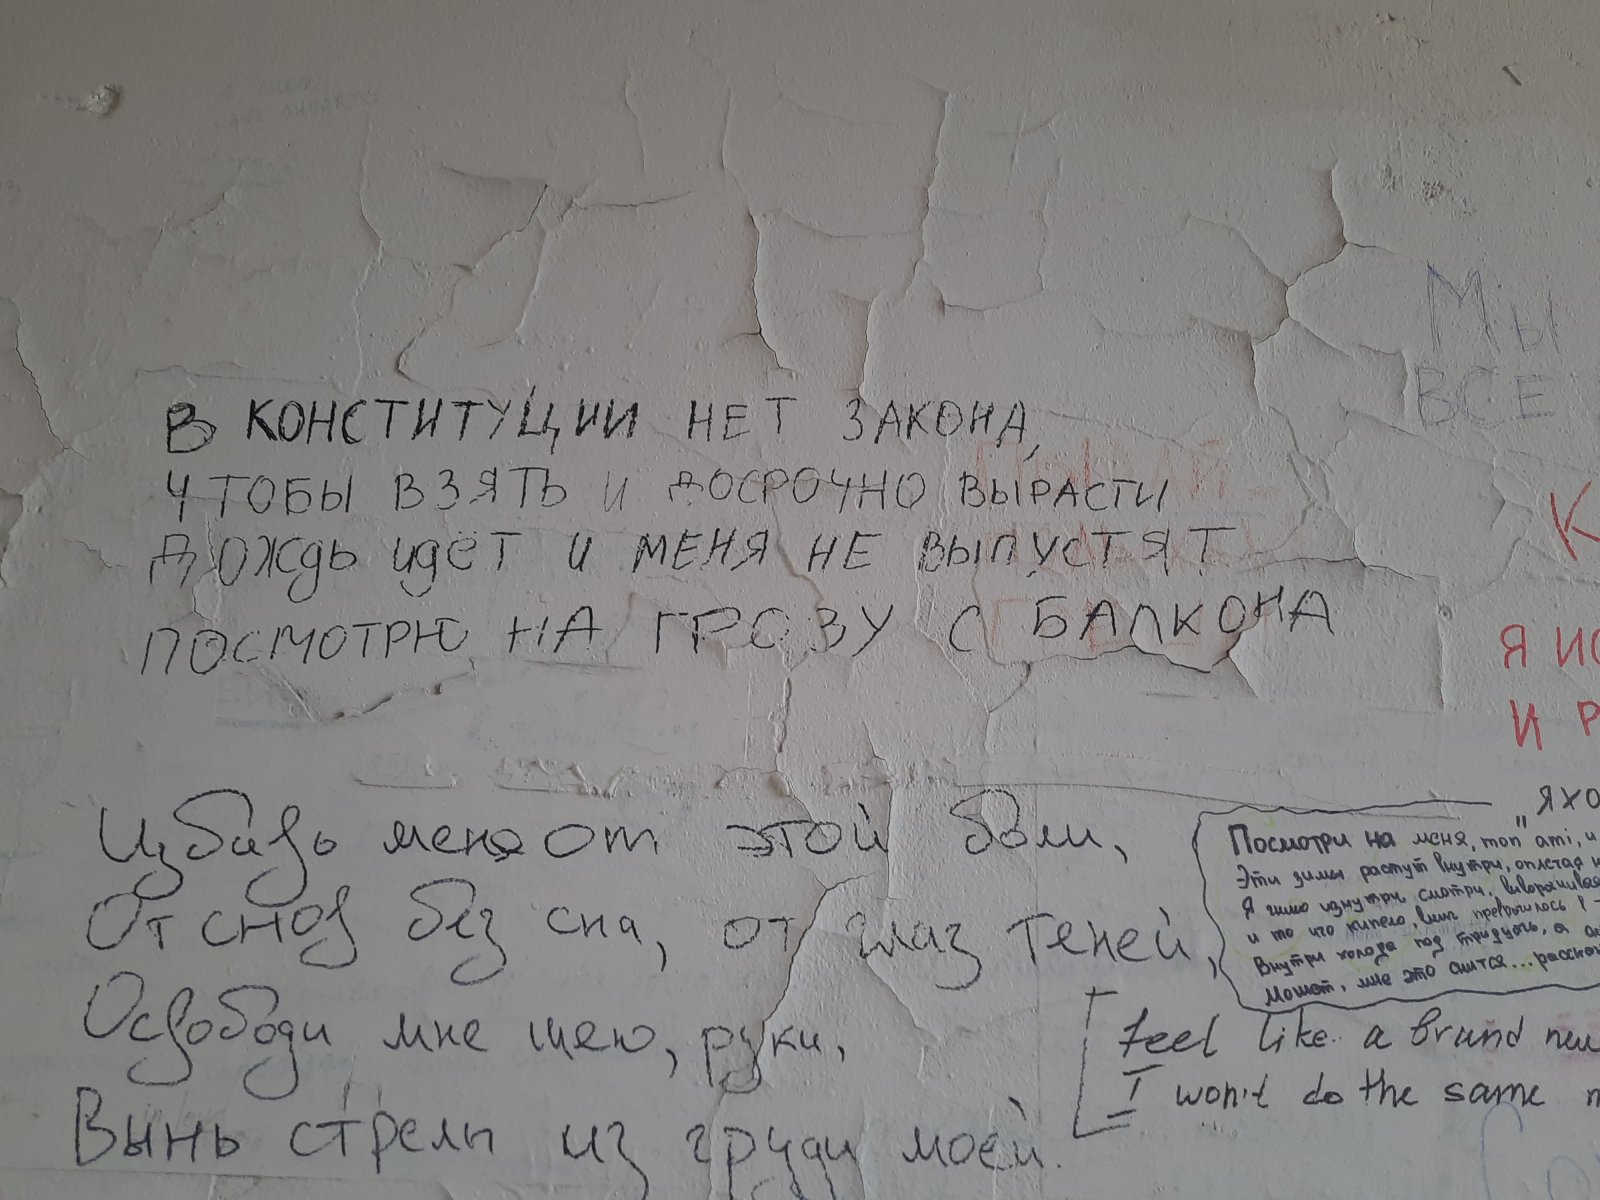 В КОНСТИТУЦИИ НЕТ ЗАКОНА,
ЧТОБЫ ВЗЯТЬ И ДОСРОЧНО ВЫРАСТИ
ДОЖДЬ ИДЁТ И МЕНЯ НЕ ВЫПУСТЯТ
ПОСМОТРЮ НА ГРОЗУ С БАЛКОНА
Мы
ВСЕ
К
Я ИС
И Р
Избавь меня от этой боли,
От снов без сна, от глаз теней,
Освободи мне шею, руки,
Вынь стрелы из груди моей.
"ЯХО
Посмотри на меня, mon ami, и
Эти зимы растут внутри, оплетая
Я гнию изнутри, смотри,
и то что кипело,
Внутри холода под тридцать, а
Может, мне это снится...
feel like a brand new
I won't do the same